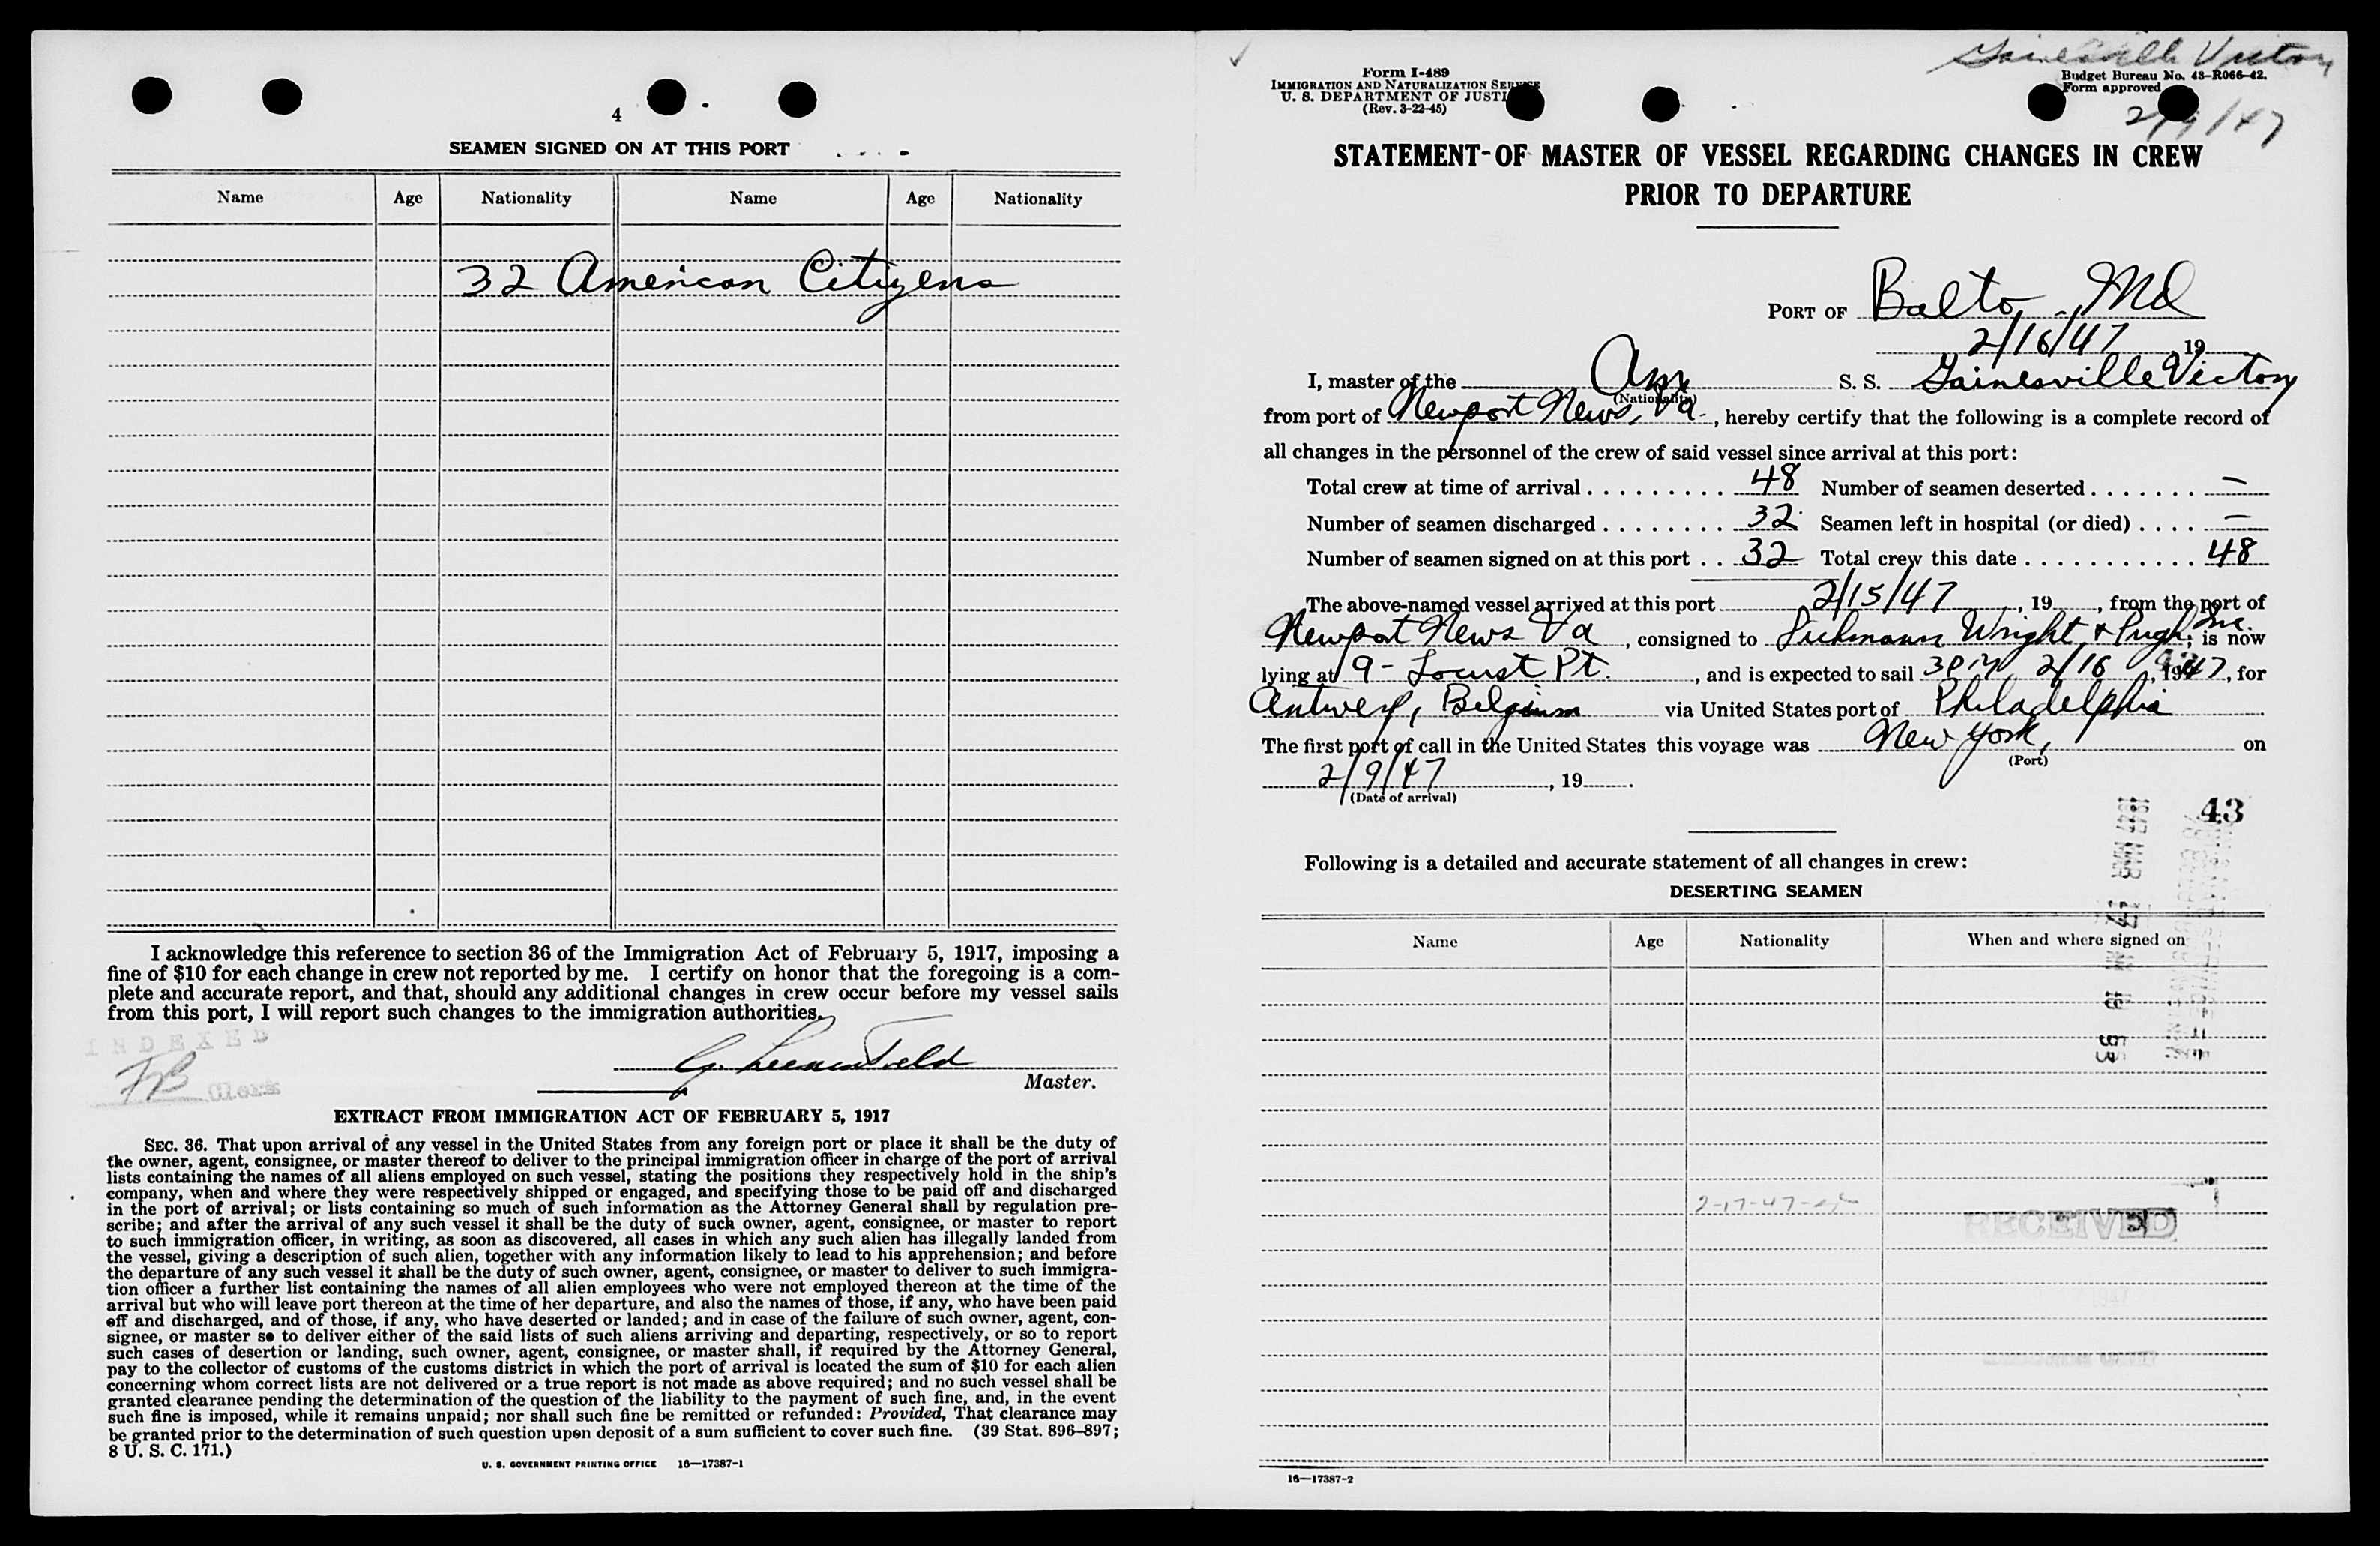 4
SEAMEN SIGNED ON AT THIS PORT
Name Age Nationality Name Age Nationality
32 American Citizens
I acknowledge this reference to section 36 of the Immigration Act of February 5, 1917, imposing a
fine of $10 for each change in crew not reported by me. I certify on honor that the foregoing is a com-
plete and accurate report, and that, should any additional changes in crew occur before my vessel sails
from this port, I will report such changes to the immigration authorities.
INDEXED
Clerk
Master.
EXTRACT FROM IMMIGRATION ACT OF FEBRUARY 5, 1917
SEC. 36. That upon arrival of any vessel in the United States from any foreign port or place it shall be the duty of
the owner, agent, consignee, or master thereof to deliver to the principal immigration officer in charge of the port of arrival
lists containing the names of all aliens employed on such vessel, stating the positions they respectively hold in the ship's
company, when and where they were respectively shipped or engaged, and specifying those to be paid off and discharged
in the port of arrival; or lists containing so much of such information as the Attorney General shall by regulation pre-
scribe; and after the arrival of any such vessel it shall be the duty of such owner, agent, consignee, or master to report
to such immigration officer, in writing, as soon as discovered, all cases in which any such alien has illegally landed from
the vessel, giving a description of such alien, together with any information likely to lead to his apprehension; and before
the departure of any such vessel it shall be the duty of such owner, agent, consignee, or master to deliver to such immigra-
tion officer a further list containing the names of all alien employees who were not employed thereon at the time of the
arrival but who will leave port thereon at the time of her departure, and also the names of those, if any, who have been paid
off and discharged, and of those, if any, who have deserted or landed; and in case of the failure of such owner, agent, con-
signee, or master so to deliver either of the said lists of such aliens arriving and departing, respectively, or so to report
such cases of desertion or landing, such owner, agent, consignee, or master shall, if required by the Attorney General,
pay to the collector of customs of the customs district in which the port of arrival is located the sum of $10 for each alien
concerning whom correct lists are not delivered or a true report is not made as above required; and no such vessel shall be
granted clearance pending the determination of the question of the liability to the payment of such fine, and, in the event
such fine is imposed, while it remains unpaid; nor shall such fine be remitted or refunded: Provided, That clearance may
be granted prior to the determination of such question upon deposit of a sum sufficient to cover such fine. (39 Stat. 896–897;
8 U. S. C. 171.)
U. S. GOVERNMENT PRINTING OFFICE 16—17387-1
Gainesville Victory
Form I-489
IMMIGRATION AND NATURALIZATION SERVICE
U. S. DEPARTMENT OF JUSTI
(Rev. 3-22-45)
Budget Bureau No. 43-R066-42.
Form approved
2/9/47
STATEMENT OF MASTER OF VESSEL REGARDING CHANGES IN CREW
PRIOR TO DEPARTURE
PORT OF Balto, Md
2/16/47, 19
I, master of the Am S. S. Gainesville Victory
(Nationality)
from port of Newport News, Va., hereby certify that the following is a complete record of
all changes in the personnel of the crew of said vessel since arrival at this port:
Total crew at time of arrival 48 Number of seamen deserted —
Number of seamen discharged 32 Seamen left in hospital (or died) —
Number of seamen signed on at this port 32 Total crew this date 48
The above-named vessel arrived at this port 2/15/47, 19, from the port of
Newport News Va, consigned to Wright & Pugh, Inc.; is now
lying at 9 - Locust Pt., and is expected to sail 3PM 2/16, 1947, for
Antwerp, Belgium via United States port of Philadelphia
The first port of call in the United States this voyage was New York, on
(Port)
2/9/47, 19.
(Date of arrival)
43
Following is a detailed and accurate statement of all changes in crew:
DESERTING SEAMEN
Name Age Nationality When and where signed on
2-17-47
RECEIVED
16—17387-2